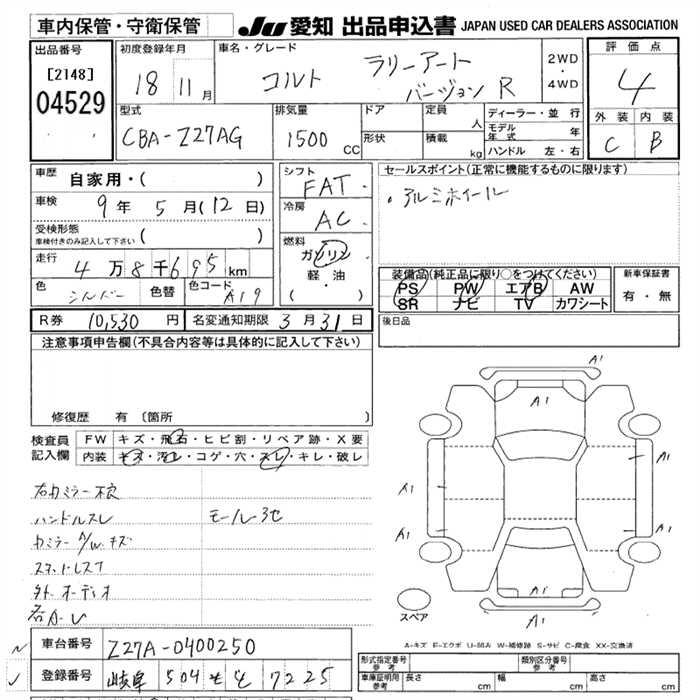 車内保管・守衛保管
JU 愛知 出品申込書 JAPAN USED CAR DEALERS ASSOCIATION
出品番号
[2148]
04529
初度登録年月
18 11月
車名・グレード
コルト ラリーアート
バージョン R
2WD
・
4WD
評価点
4
外装 内装
C B
型式
CBA-Z27AG
排気量
1500 CC
ドア
形状
定員 人
積載 kg
ディーラー・並行
モデル年式 年
ハンドル 左・右
車歴 自家用・( )
車検 9年 5月(12日)
受検形態
車検付きのみ記入して下さい ( )
走行 4万8千695km
色 シルバー 色替 色コード A19
シフト
FAT
冷房
AC
燃料
ガソリン
軽・油
( ・ )
セールスポイント(正常に機能するものに限ります)
・アルミホイール
装備品(純正品に限り○をつけてください)
PS PW エアB AW
SR ナビ TV カワシート
新車保証書
有・無
後日品
R券 10,530円 名変通知期限 3月31日
注意事項申告欄(不具合内容等は具体的に記入して下さい)
修復歴 有 〔箇所
検査員
記入欄
FW キズ・飛石・ヒビ割・リペア跡・X要
内装 キズ・汚レ・コゲ・穴・スレ・キレ・破レ
右カミラー不良
ハンドルスレ モール3セ
カミラー A/W キズ
外オーディオ
各A-U
A1
A1
A1
A1
A1
A1
A1
A1
A1
スペア
A-キズ E-エクボ U-凹A W-補修跡 S-サビ C-腐食 XX-交換済
車台番号 Z27A-0400250
登録番号 岐阜 504 も 7225
形式指定番号
参考
類別区分番号
参考
車庫証明用
参考
長さ cm 幅 cm 高さ cm